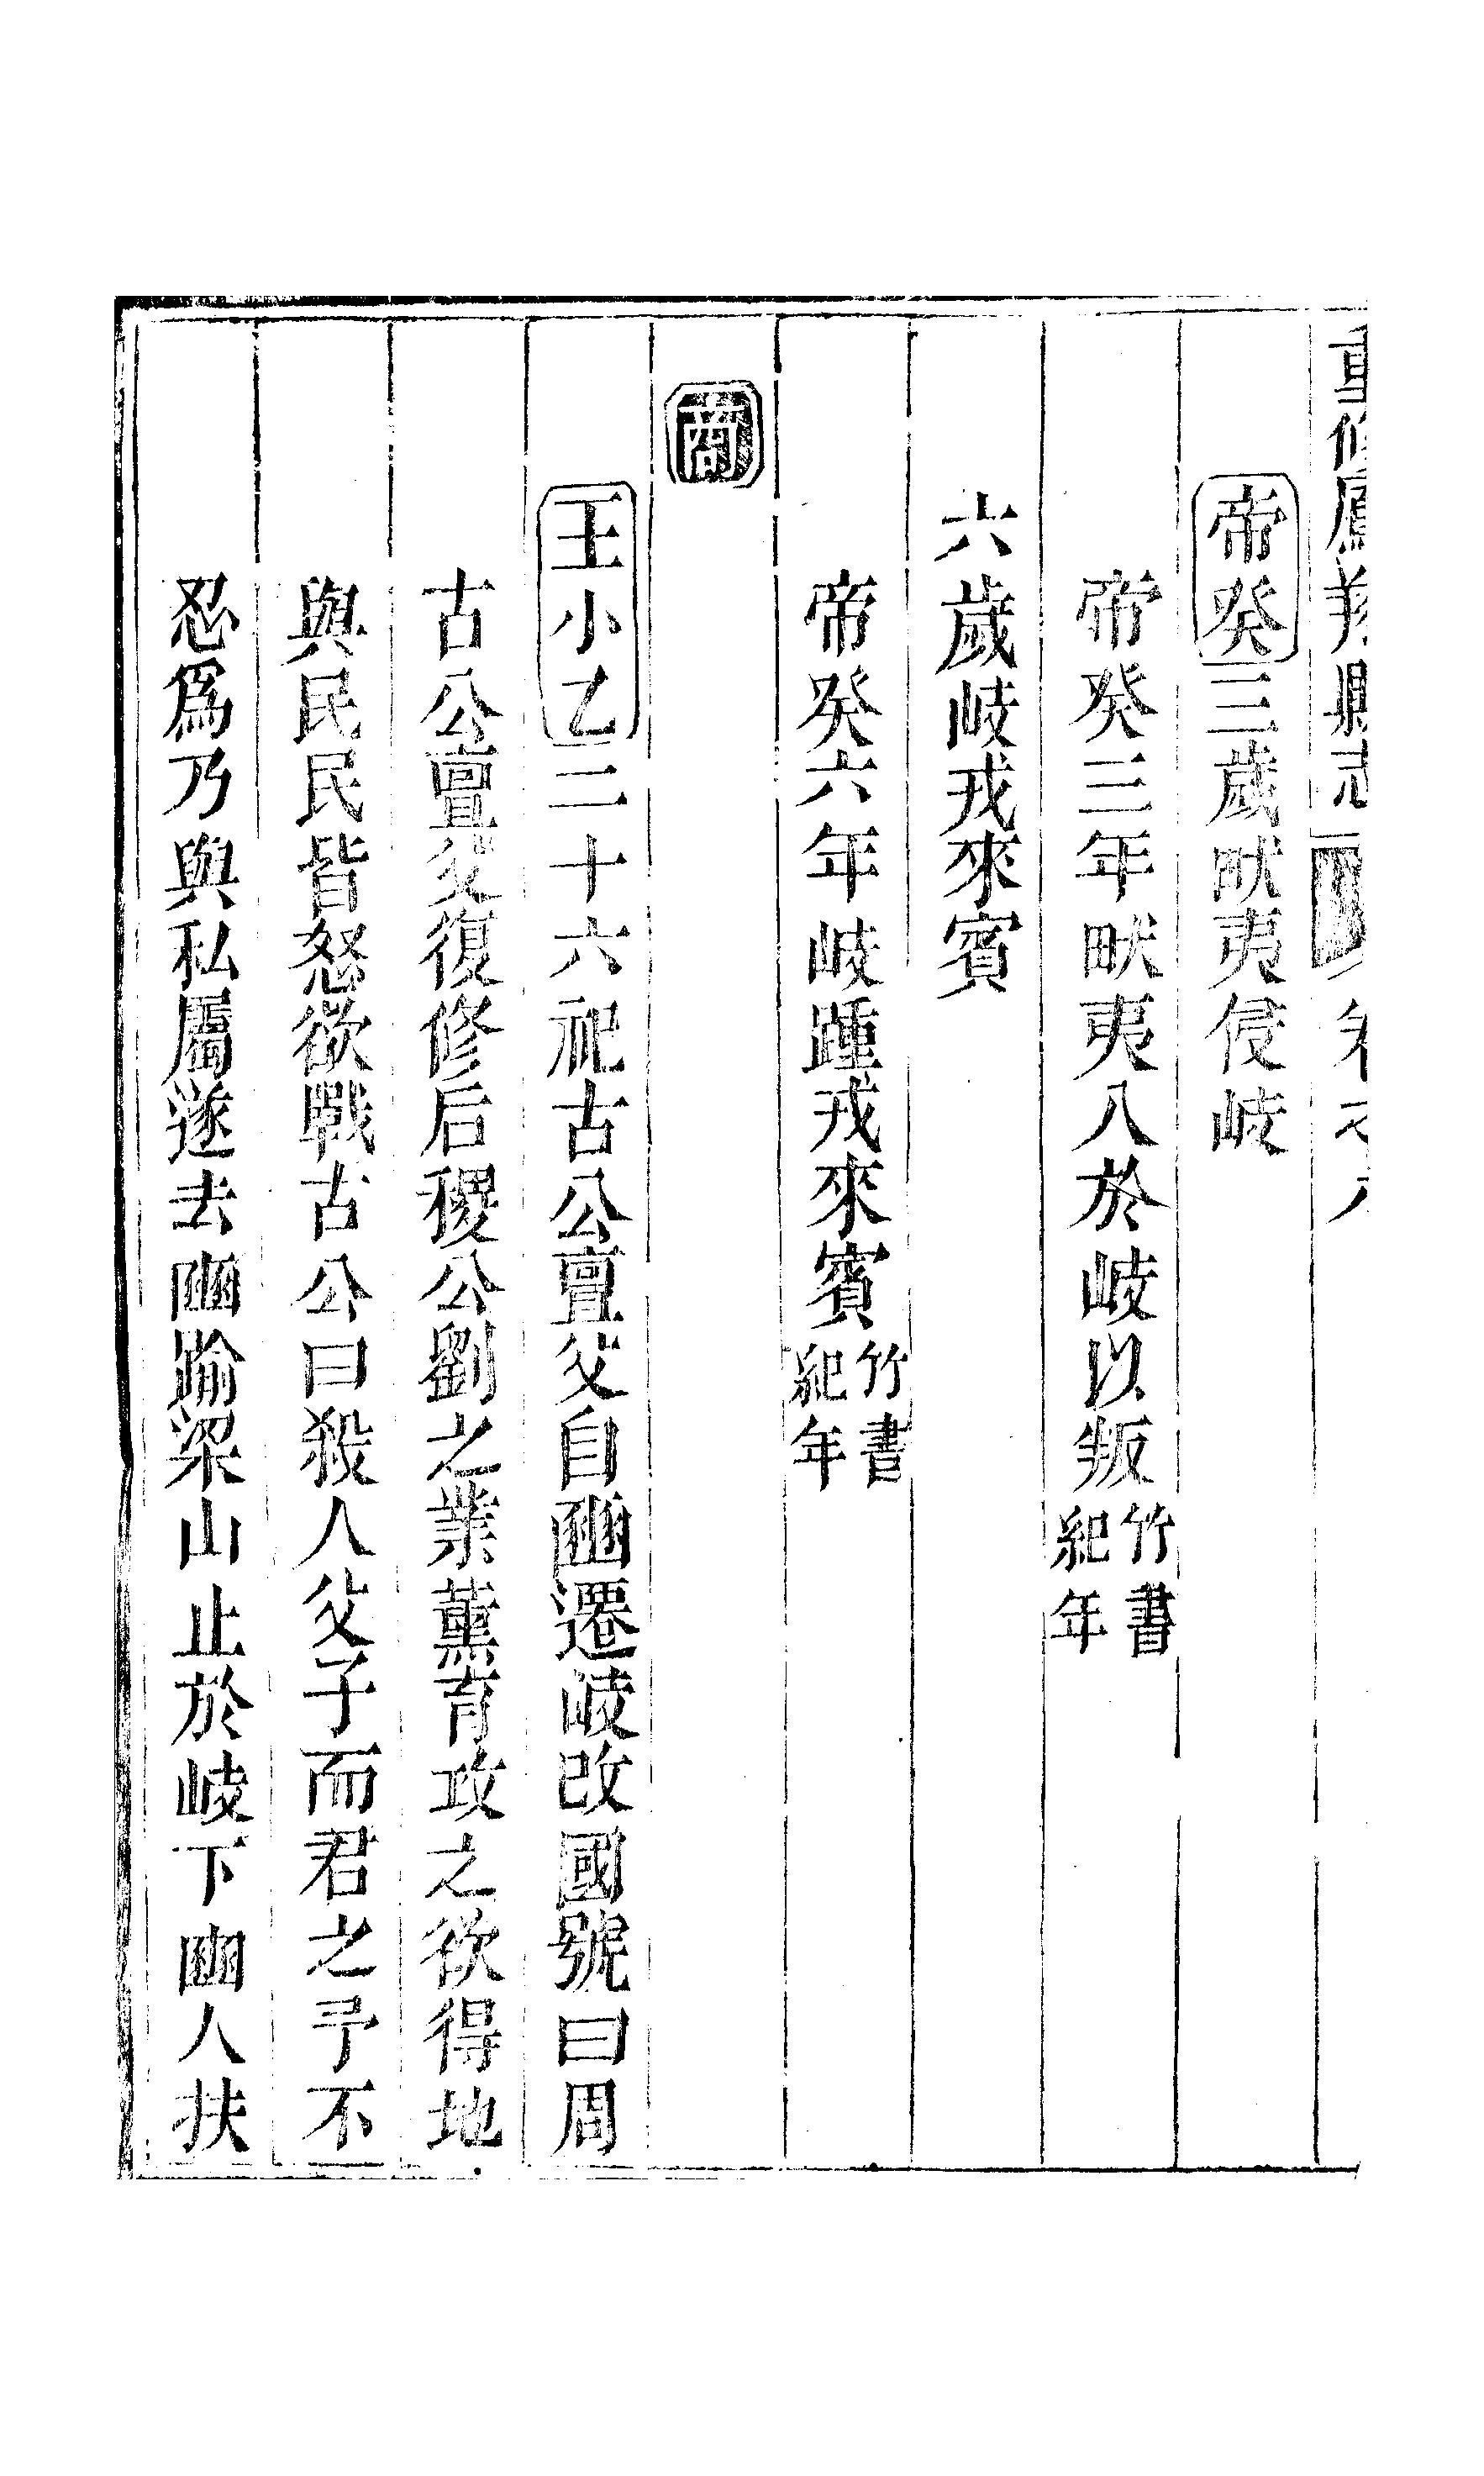 重修鳳翔縣志 卷之八
帝癸三歲畎夷侵岐
帝癸三年畎夷入於岐以叛竹書紀年
六歲岐戎來賓
帝癸六年岐踵戎來賓竹書紀年
商
王小乙二十六祀古公亶父自豳遷岐改國號曰周
古公亶父復修后稷公劉之業薰育攻之欲得地
與民民皆怒欲戰古公曰殺人父子而君之予不
忍爲乃與私屬遂去豳踰梁山止於岐下豳人扶